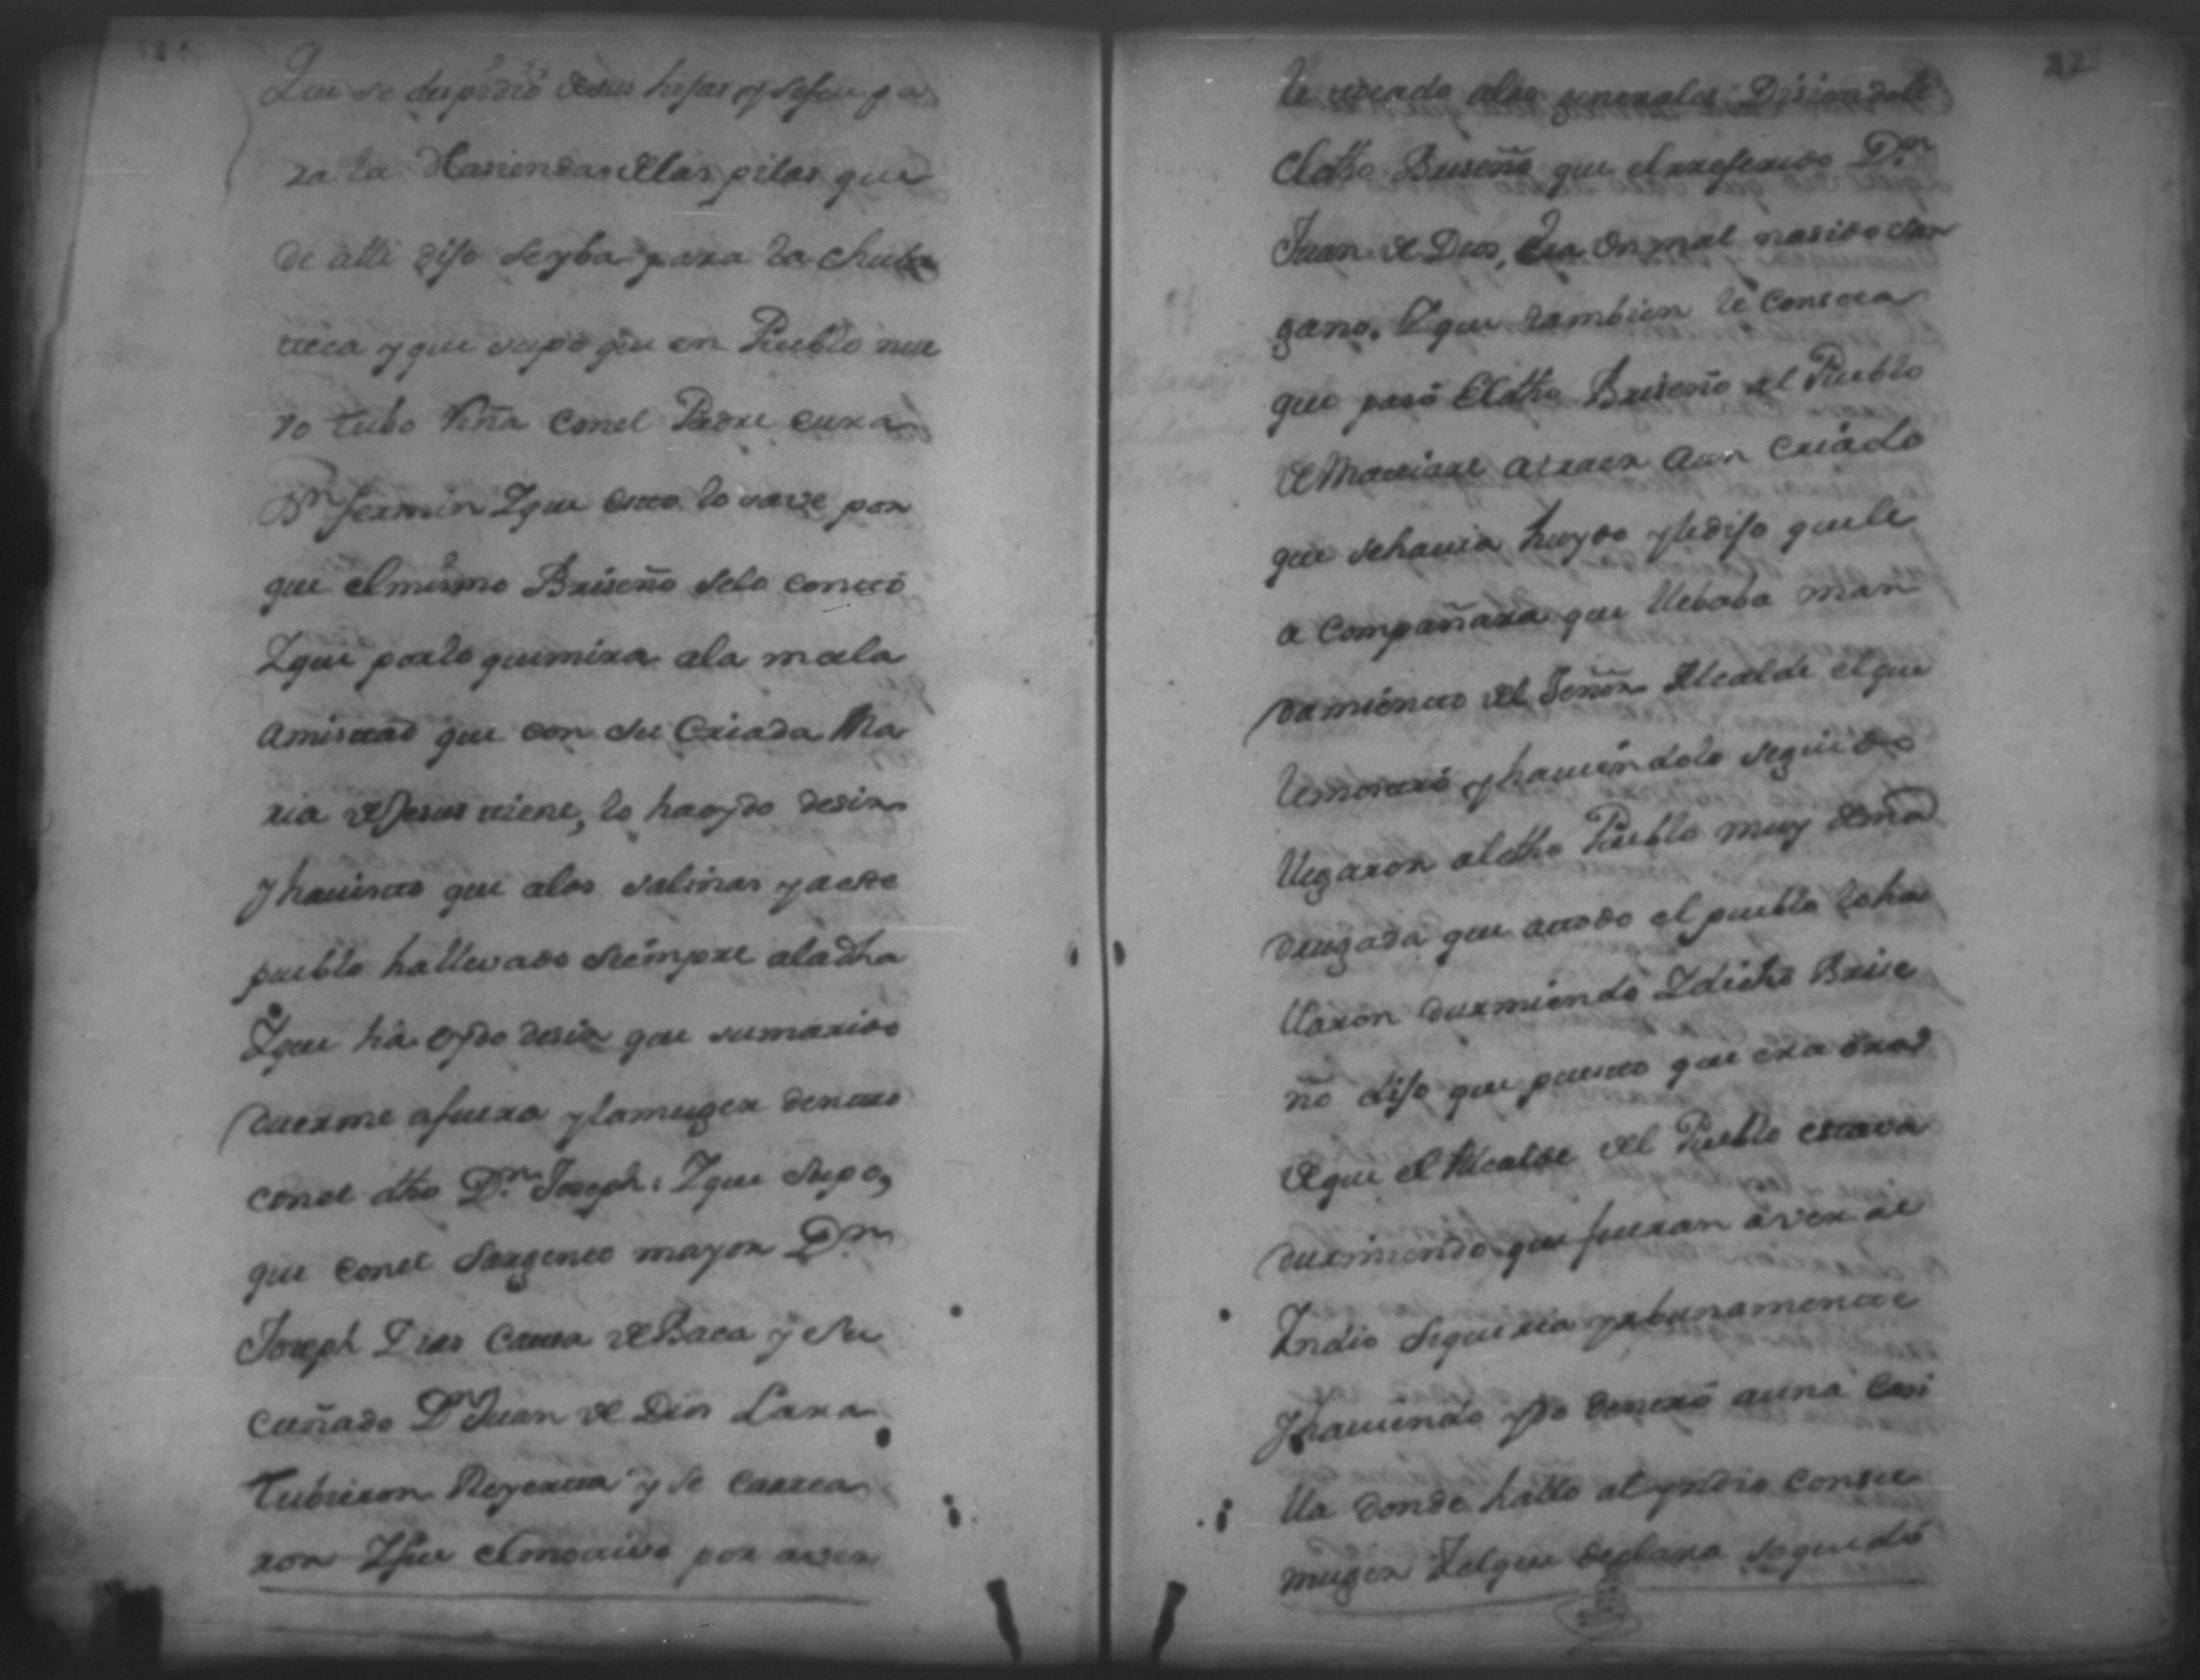 Que se despidio desus hijas y se fue pa
ra la Hasienda de las pilas que
de alli dijo se yba para la chulu
teca y que supo que en Pueblo nue
vo tubo Riña conel Padre cura
Dn fermin Y que esto lo save por
que el mismo Briseño se lo contó
Y que por lo que mira a la mala
amistad que con su Criada Ma
ria de Jesus tiene, lo ha oydo desir
Y ha visto que a las salinas y a este
pueblo ha llevado siempre a la dha
Y que ha oydo desir que su marido
duerme afuera y la muger dentro
conel dho Dn Joseph: Y que supo,
que conel Sargento mayor Dn
Joseph Dias Cauesa de Baca y su
cuñado Dn Juan de Dios Lara
tubieron Reyerta y se carea
ron Y fue el motivo por aver
22
le al Disiendole
el dho Briseño que el rreferido Dn
Juan de Dios, era un mal nasido
gano. Y que tambien le consta
que pasó el dho Briseño al Pueblo
de Matiare a traer a un Criado
que se hauia huydo y le dijo que le
a compañara que llebaba man
damiento del Señor Alcalde el que
le mostró y hauiendolo seguido
llegaron al dho Pueblo muy de ma
drugada que a todo el pueblo lo ha
llaron durmiendo Y dicho Brise
ño dijo que puesto que era ora
de que el Alcalde del Pueblo estava
durmiendo que fueran a ver al
Indio
Y hauiendo ydo dentró a una Casi
lla donde halló al yndio con su
muger Y el que declara se quedó